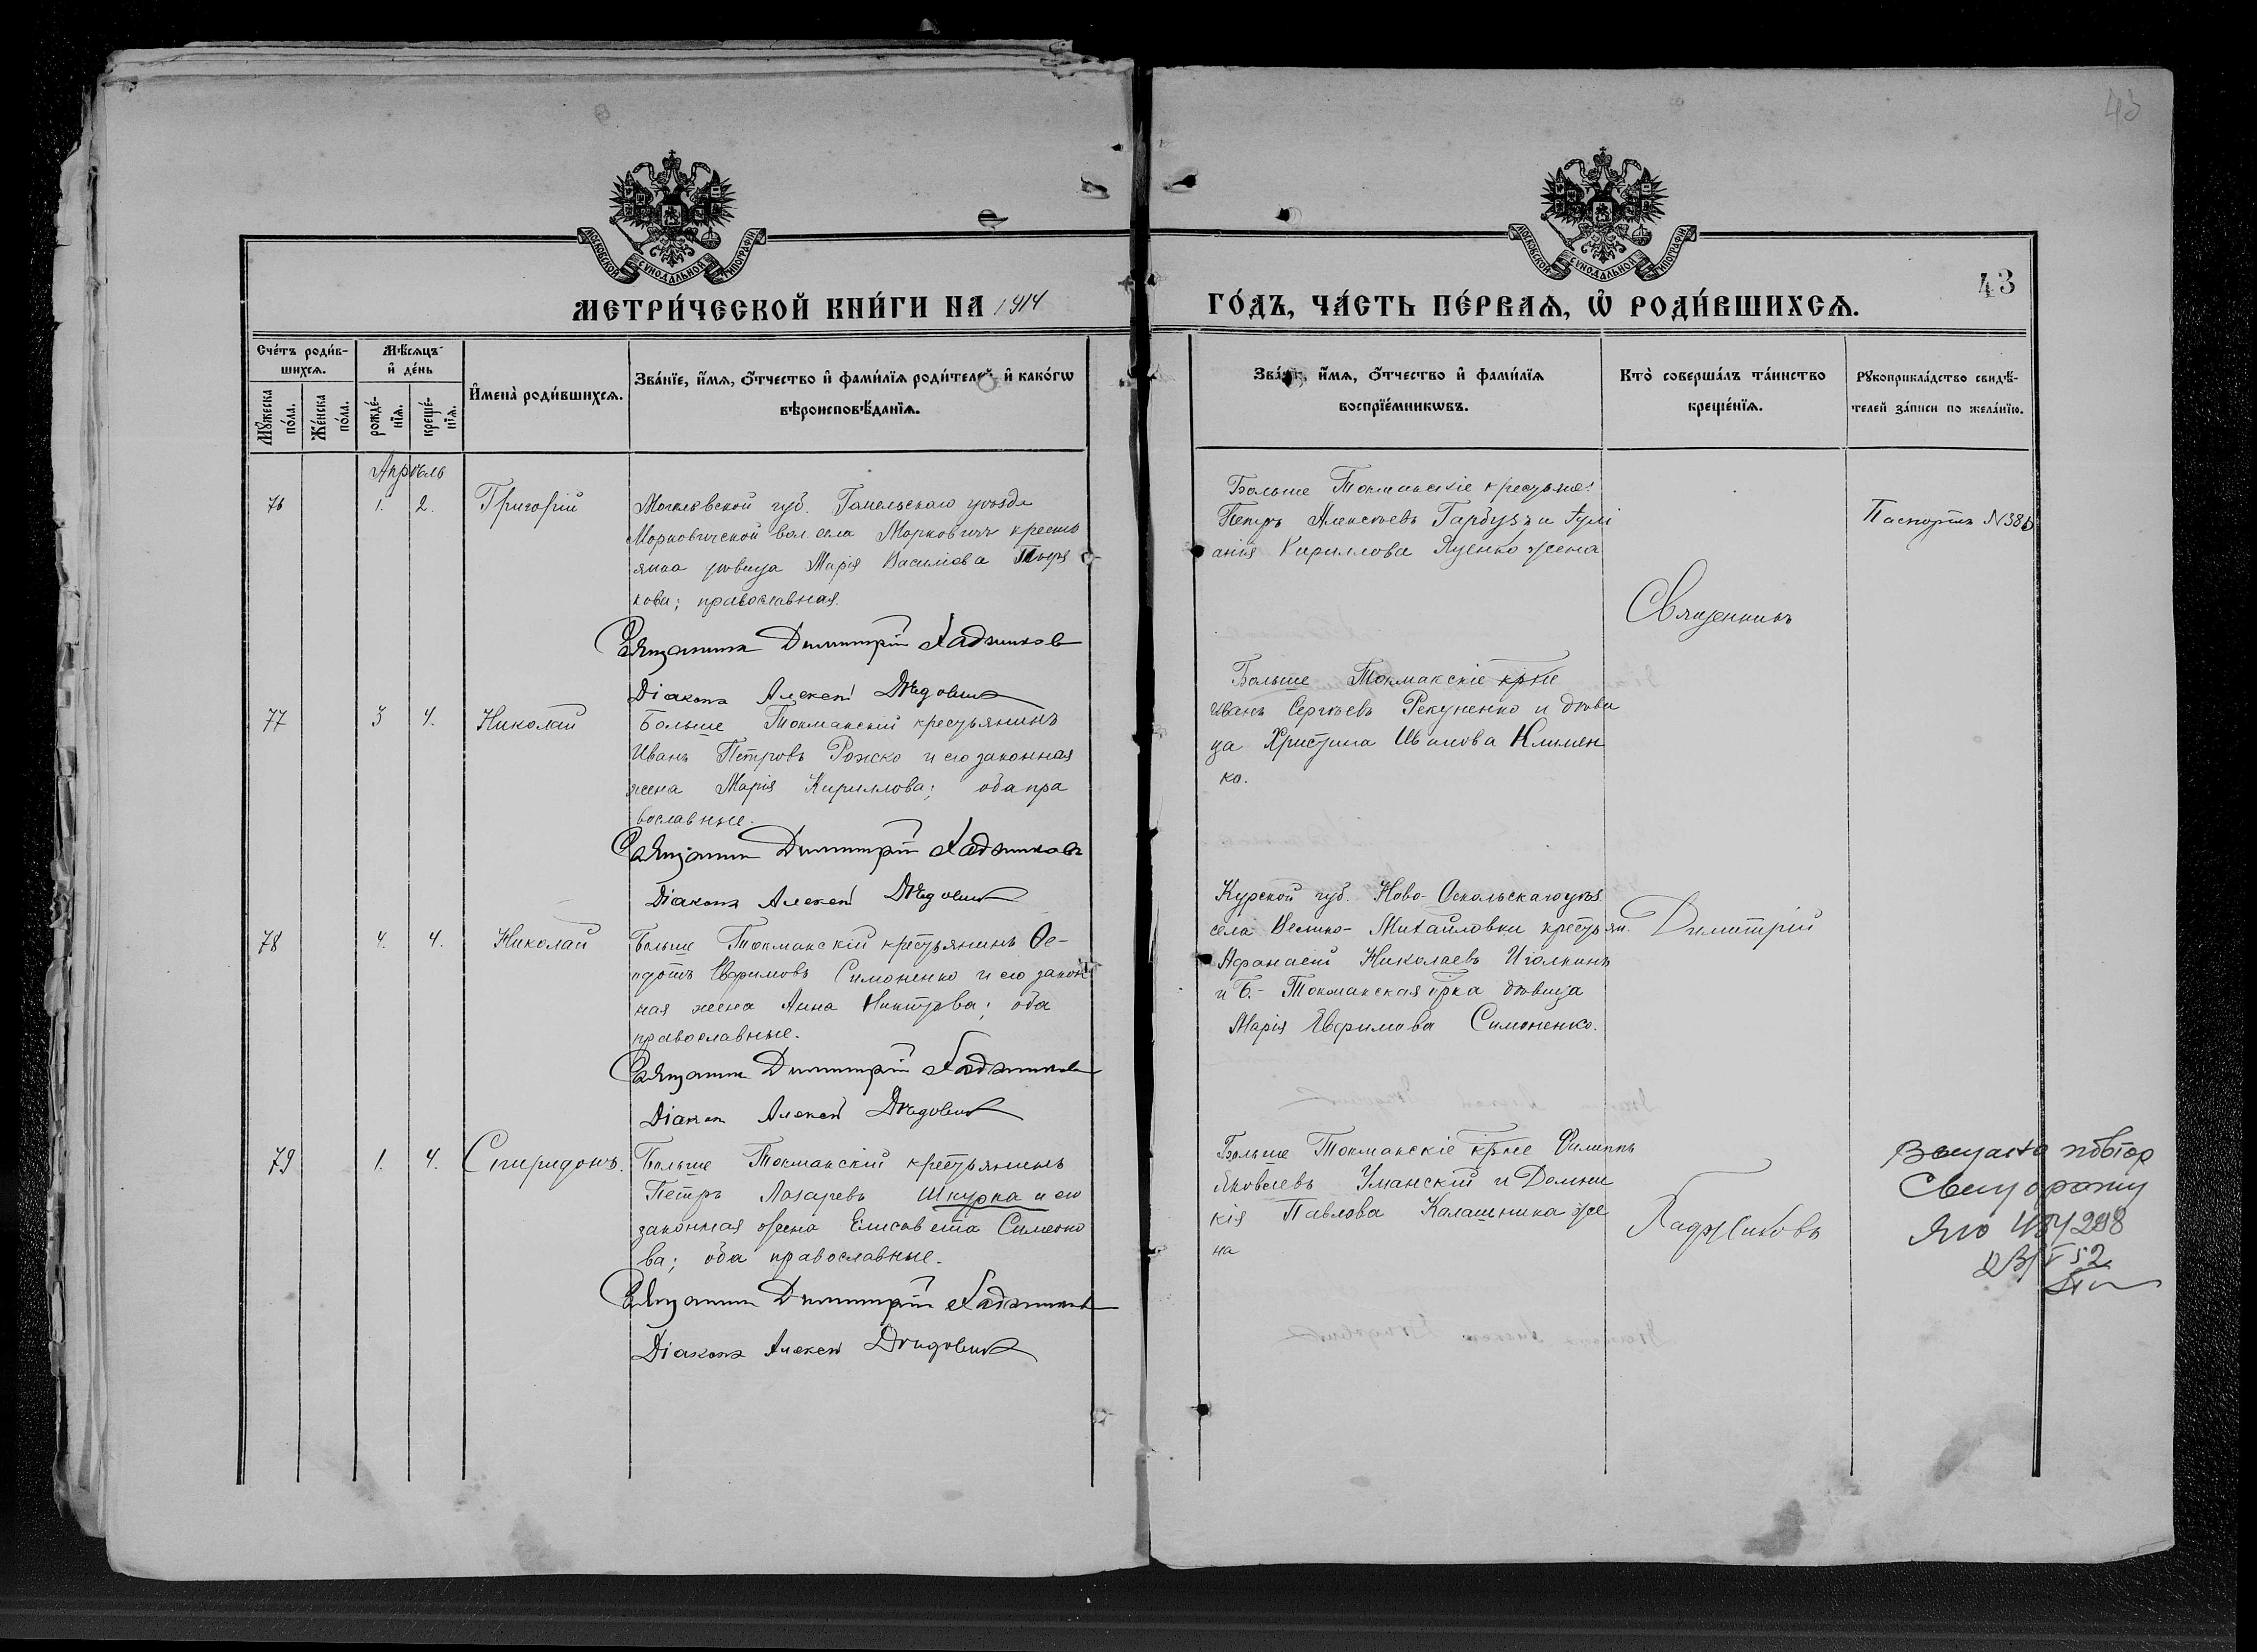 43
43
МОСКОВСКОЙ СѴНОДАЛЬНОЙ ТИПОГРАФІИ
МОСКОВСКОЙ СѴНОДАЛЬНОЙ ТИПОГРАФІИ
МЕТРИ́ЧЕСКОЙ КНИ́ГИ НА 1914
ГО́ДЪ, ЧА́СТЬ ПЕ́РВАЯ, Ѿ РОДИ́ВШИХСЯ.
Сче́тъ роди́в-
шихся.
Мѣ́сяцъ
и҆ де́нь
Мꙋ́жеска
по́ла.
Же́нска
по́ла.
рожде́-
нїя.
креще́-
нїя.
И҆мена̀ роди́вшихся.
Зва́нїе, и҆́мя, ѻ҆́тчество и҆ фами́лїя роди́телей, и҆ како́гѡ
вѣроисповѣ́данїя.
Зва́нїе, и҆́мя, ѻ҆́тчество и҆ фами́лїя
воспрїе́мникѡвъ.
Кто̀ соверша́лъ та́инство
креще́нїя.
Рꙋкоприкла́дство свидѣ́-
телей за́писи по жела́нїю.
Апрѣль
76 1. 2. Григорій
Могилевской губ. Гомельскаго уѣзда
Марковичской вол. села Марковичъ кресть
янка дѣвица Марія Василіева
кова; православная.
Священникъ Димитрій Хаджиновъ
Діаконъ Алексей
Больше Токмакскіе крестьяне:
Петръ Алексѣевъ Гарбузъ и Іулі
анія Кириллова Яценко жена
Паспортъ N 386
Священникъ
77 3 4. Николай
Больше Токмакскій крестьянинъ
Иванъ Петровъ Рожко и его законная
жена Марія Кириллова; оба пра
вославные.
Священникъ Димитрій Хаджиновъ
Діаконъ Алексей
Больше Токмакскіе крне
Иванъ Сергѣевъ Рекуненко и дѣви
ца Христина Иванова Климен
ко.
78 4. 4. Николай
Больше Токмакскій крестьянинъ Ѳе-
одотъ Евфимовъ Симоненко и его закон
ная жена Анна Никитова; оба
православные.
Священникъ Димитрій Хаджиновъ
Діаконъ Алексей
Курской губ. Ново-Оскольскаго уѣз.
села Велико-Михайловки крестьян.
Афанасій Николаевъ Иголкинъ
и Б.-Токмакская крка дѣвица
Марія Евфимова Симоненко.
Димитрій
79 1. 4. Спиридонъ.
Больше Токмакскій крестьянинъ
Петръ Лазаревъ Шкурка и его
законная жена Елисавета Симеоно
ва; оба православные.
Священникъ Димитрій Хаджиновъ
Діаконъ Алексей
Больше Токмакскіе крне Филиппъ
Яковлевъ Уманскій и Домни
кія Павлова Калашника же
на
Хаджиновъ